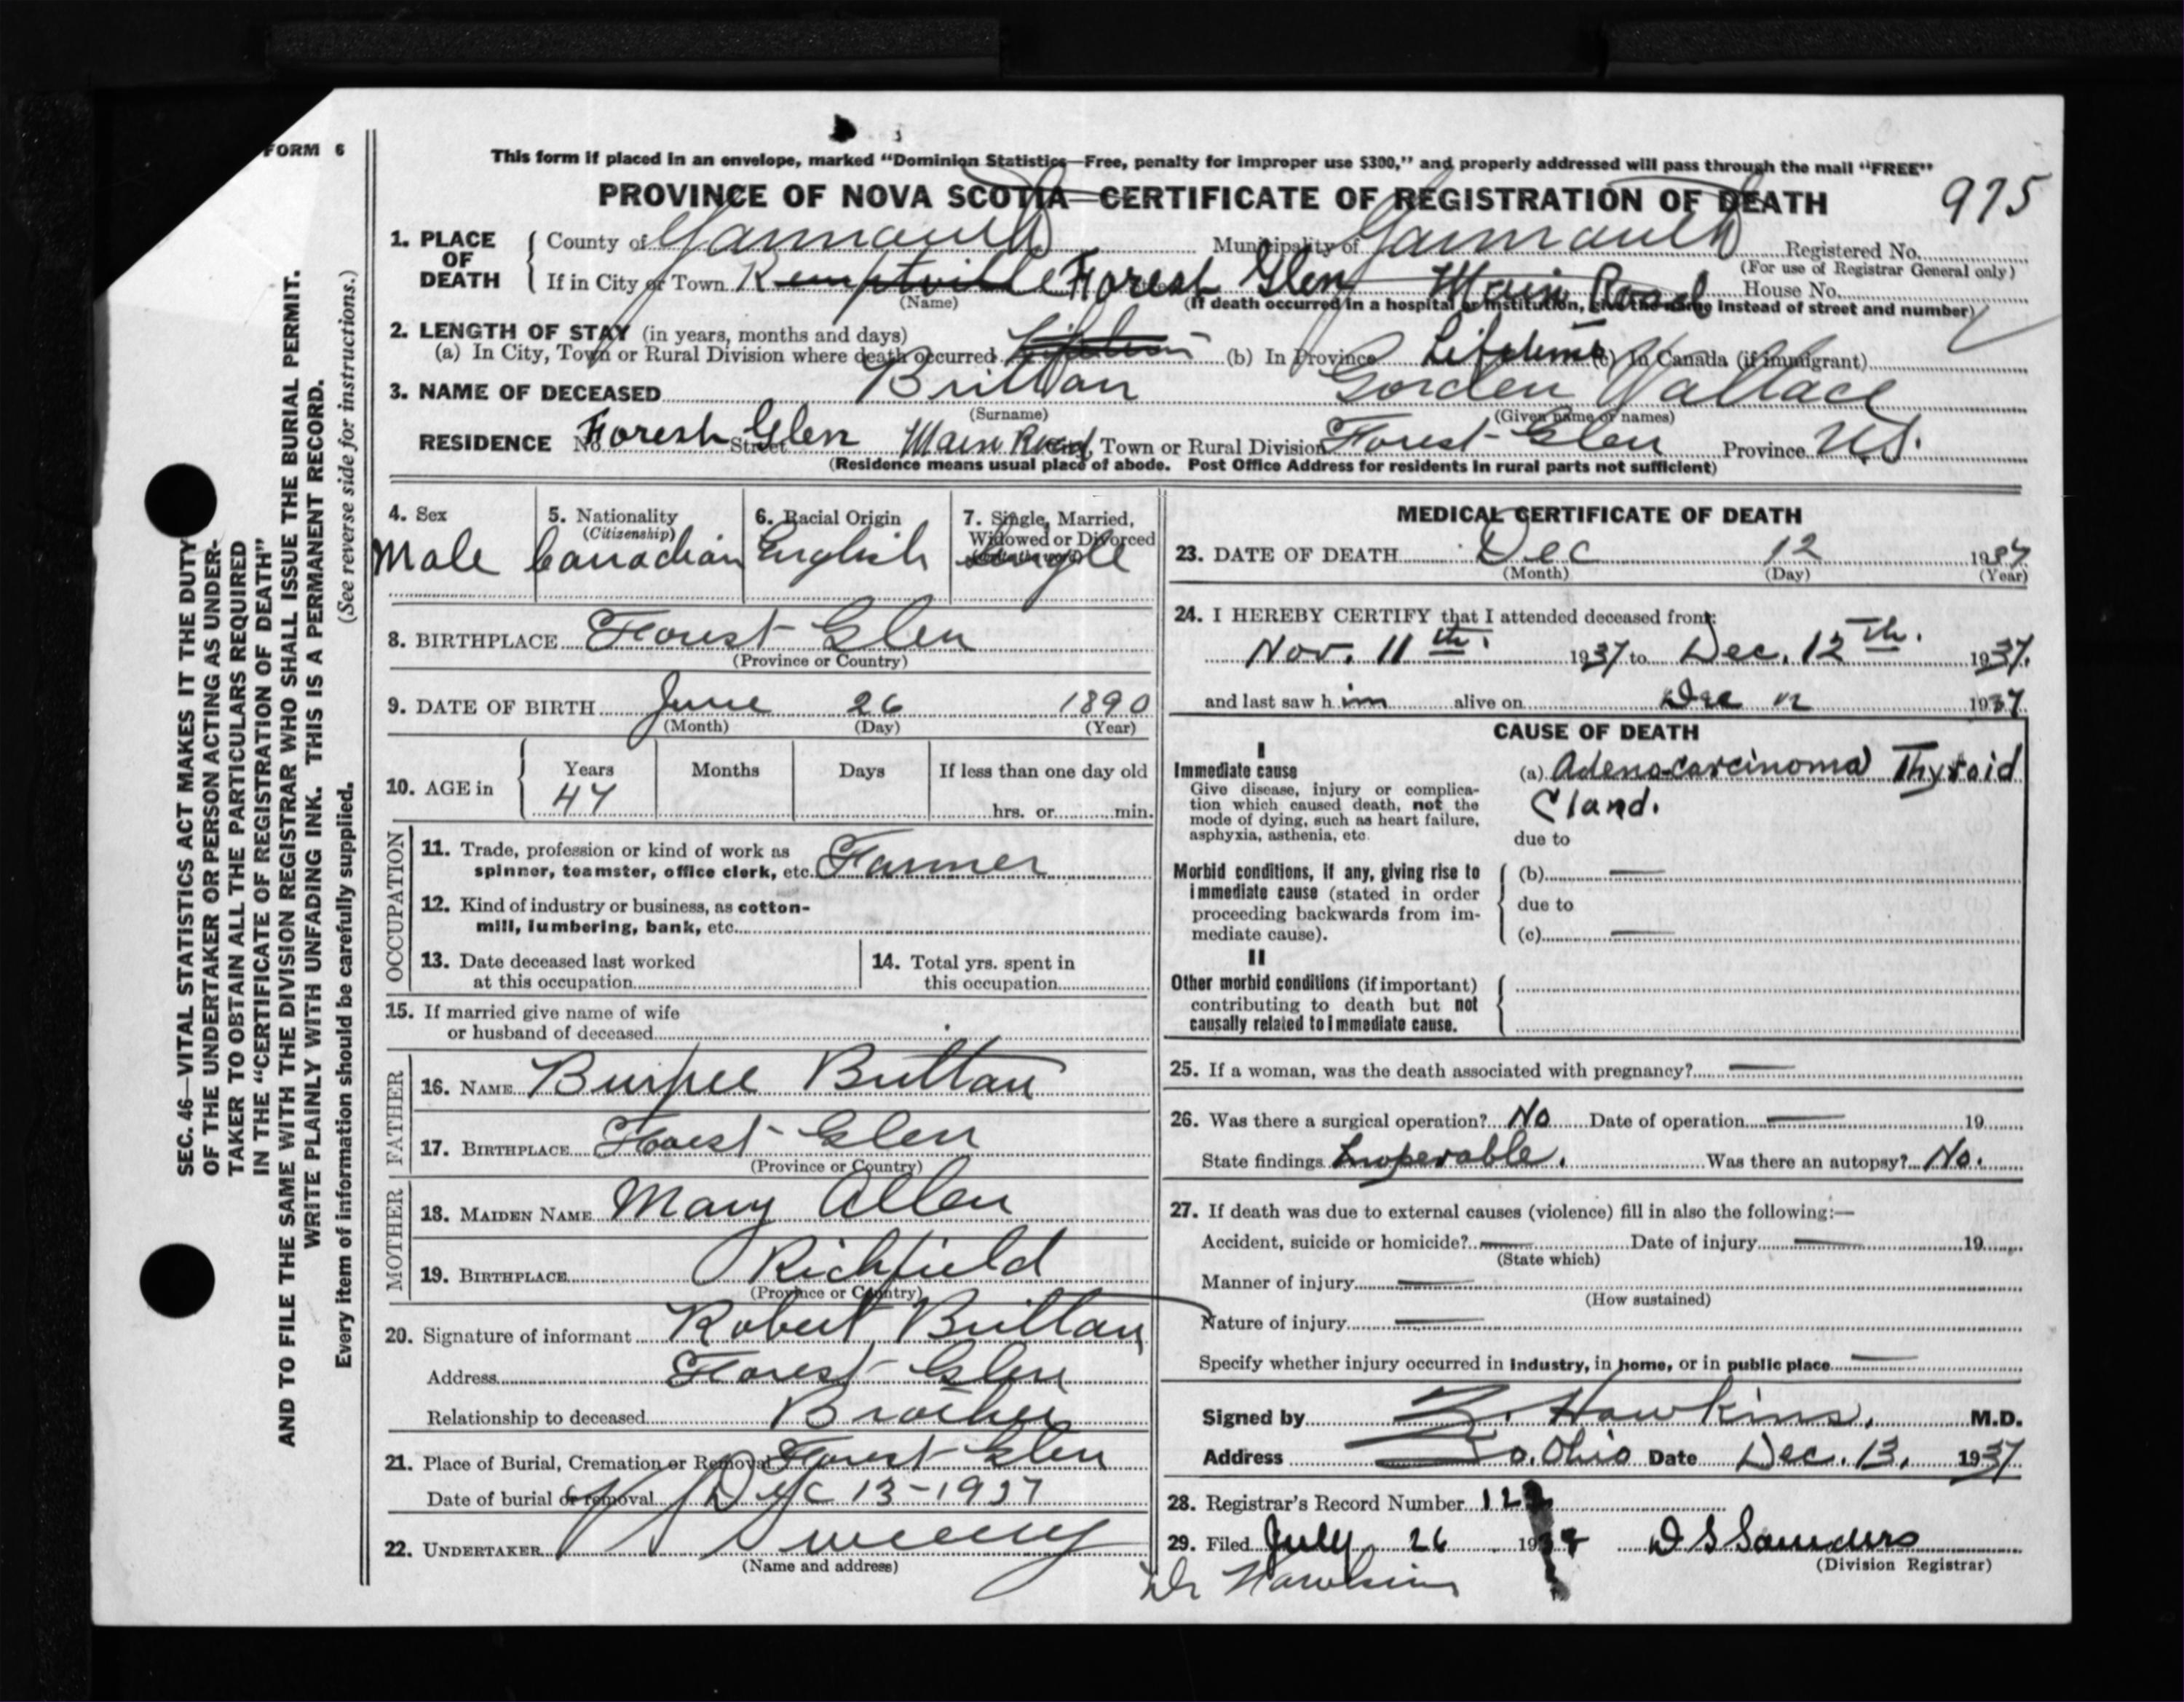 FORM 6
This form if placed in an envelope, marked "Dominion Statistics—Free, penalty for improper use $300," and properly addressed will pass through the mail "FREE"
PROVINCE OF NOVA SCOTIA—CERTIFICATE OF REGISTRATION OF DEATH
975
1. PLACE OF DEATH
County of Yarmouth Municipality of Yarmouth Registered No.
(For use of Registrar General only)
If in City or Town Kemptville Forest Glen Main Road House No.
(Name) (If death occurred in a hospital or institution, give the name instead of street and number)
2. LENGTH OF STAY (in years, months and days)
(a) In City, Town or Rural Division where death occurred Lifetime (b) In Province Lifetime (c) In Canada (if immigrant)
3. NAME OF DECEASED Brittan Gorden Wallace
(Surname) (Given name or names)
RESIDENCE No. Forest Glen Street Main Road, Town or Rural Division Forest Glen Province N.S.
(Residence means usual place of abode. Post Office Address for residents in rural parts not sufficient)
4. Sex
Male
5. Nationality
(Citizenship)
Canadian
6. Racial Origin
English
7. Single, Married,
Widowed or Divorced
(write the word)
Single
8. BIRTHPLACE Forest Glen
(Province or Country)
9. DATE OF BIRTH June 26 1890
(Month) (Day) (Year)
10. AGE in
Years Months Days If less than one day old
47 hrs. or min.
OCCUPATION
11. Trade, profession or kind of work as
spinner, teamster, office clerk, etc. Farmer
12. Kind of industry or business, as cotton-
mill, lumbering, bank, etc.
13. Date deceased last worked
at this occupation
14. Total yrs. spent in
this occupation
15. If married give name of wife
or husband of deceased
FATHER
16. NAME Burpee Brittan
17. BIRTHPLACE Forest Glen
(Province or Country)
MOTHER
18. MAIDEN NAME Mary Allen
19. BIRTHPLACE Richfield
(Province or Country)
20. Signature of informant Robert Brittan
Address Forest Glen
Relationship to deceased Brother
21. Place of Burial, Cremation or Removal Forest Glen
Date of burial or removal Dec 13-1937
22. UNDERTAKER V Sweeny
(Name and address)
MEDICAL CERTIFICATE OF DEATH
23. DATE OF DEATH Dec 12 1937
(Month) (Day) (Year)
24. I HEREBY CERTIFY that I attended deceased from:
Nov. 11th. 1937 to Dec. 12th. 1937.
and last saw him alive on Dec 12 1937
CAUSE OF DEATH
I
Immediate cause
Give disease, injury or complica-
tion which caused death, not the
mode of dying, such as heart failure,
asphyxia, asthenia, etc.
(a) Adeno-carcinoma Thyroid
Gland.
due to
Morbid conditions, if any, giving rise to
immediate cause (stated in order
proceeding backwards from im-
mediate cause).
(b) —
due to
(c) —
II
Other morbid conditions (if important)
contributing to death but not
causally related to immediate cause.
25. If a woman, was the death associated with pregnancy? —
26. Was there a surgical operation? No Date of operation — 19
State findings Inoperable. Was there an autopsy? No.
27. If death was due to external causes (violence) fill in also the following:—
Accident, suicide or homicide? — Date of injury — 19
(State which)
Manner of injury —
(How sustained)
Nature of injury —
Specify whether injury occurred in industry, in home, or in public place —
Signed by Z. Hawkins, M.D.
Address So. Ohio Date Dec. 13, 1937
28. Registrar's Record Number 12
29. Filed July 26 1938 D S Saunders
(Division Registrar)
Dr Hawkins
SEC. 46—VITAL STATISTICS ACT MAKES IT THE DUTY
OF THE UNDERTAKER OR PERSON ACTING AS UNDER-
TAKER TO OBTAIN ALL THE PARTICULARS REQUIRED
IN THE "CERTIFICATE OF REGISTRATION OF DEATH"
AND TO FILE THE SAME WITH THE DIVISION REGISTRAR WHO SHALL ISSUE THE BURIAL PERMIT.
WRITE PLAINLY WITH UNFADING INK. THIS IS A PERMANENT RECORD.
Every item of information should be carefully supplied. (See reverse side for instructions.)